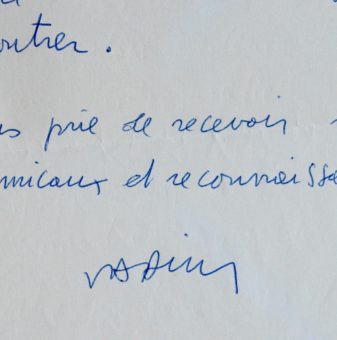 outrer.
us prie de recevoir
micaux et reconnaissa